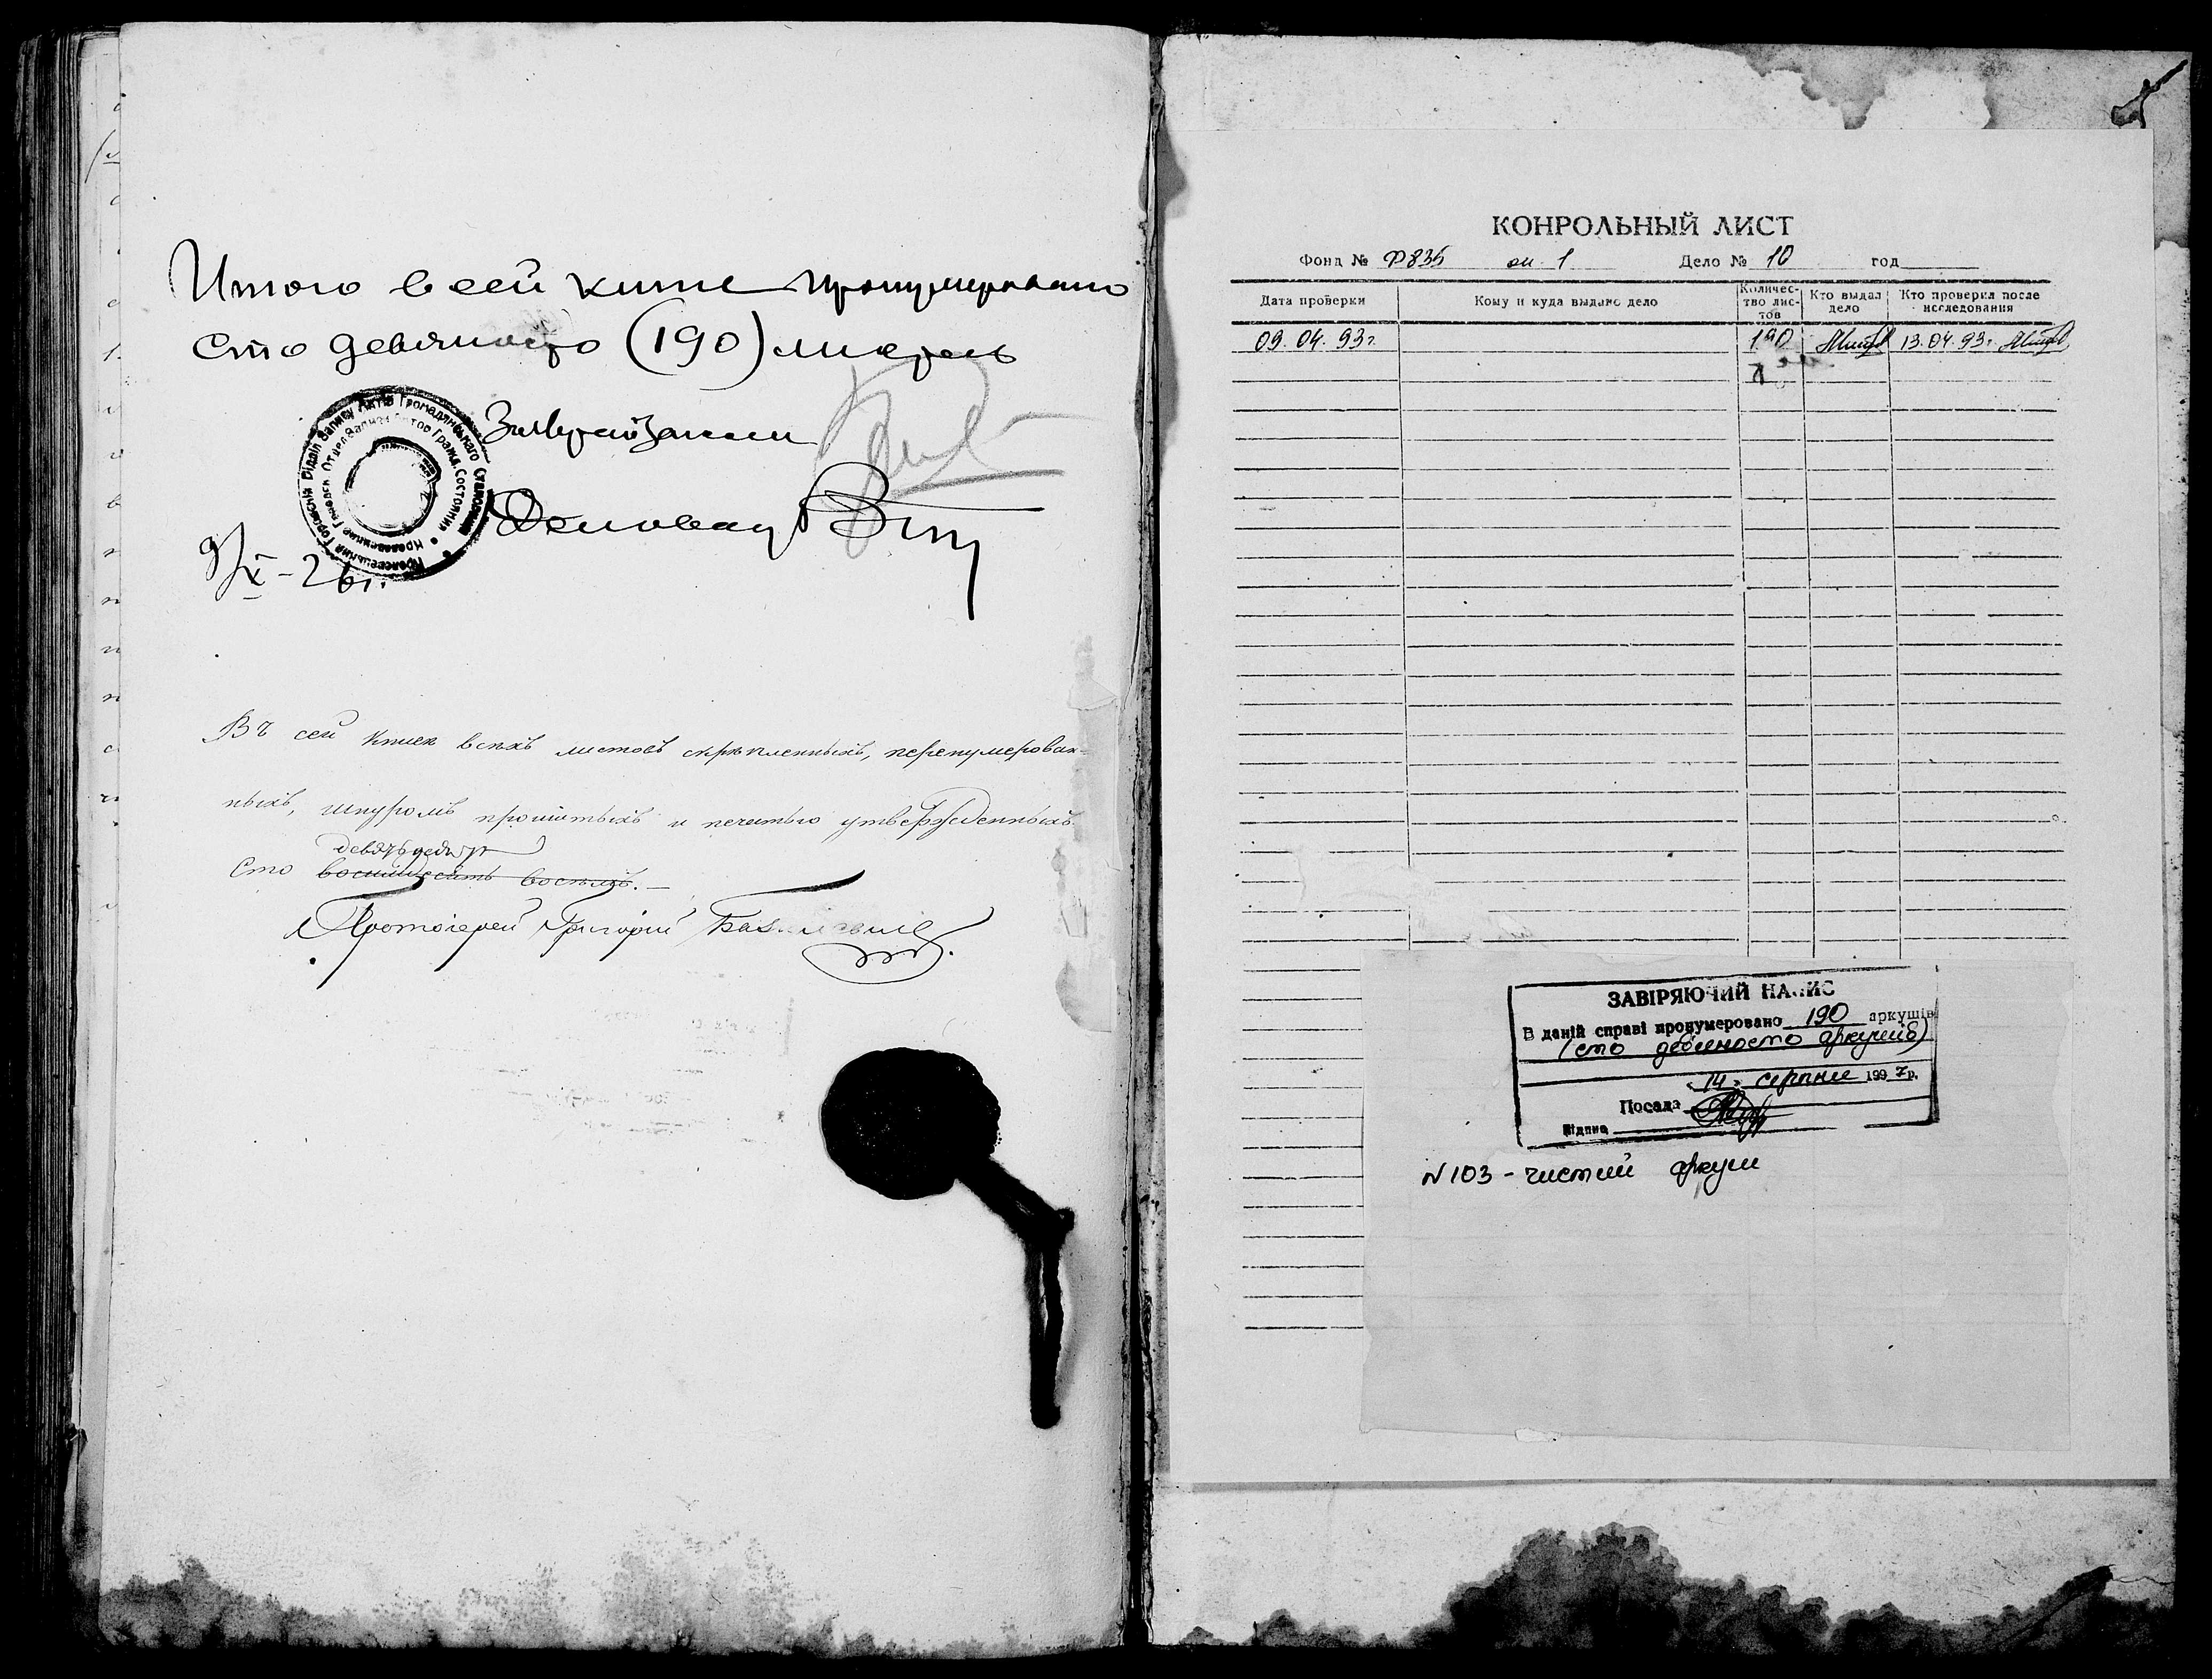 Итого в сей книге пронумеровано
сто девяносто (190) листов
Делопроиз
9/X-26 г.
Въ сей книгѣ всѣхъ листовъ скрѣпленныхъ, перенумерован-
ныхъ, шнуромъ прошитыхъ и печатью утвержденныхъ
девятьдесятъ
Сто восемьдесятъ восемь.—
Протоіерей Григорій
КОНРОЛЬНЫЙ ЛИСТ
Фонд № Р835 оп 1 Дело № 10 год
Дата проверки Кому и куда выдано дело Количес-тво лис-тов Кто выдал дело Кто проверил после исследования
09.04.93г. 190 13.04.93г.
ЗАВІРЯЮЧИЙ НАПИС
В даній справі пронумеровано 190 аркушів
(сто дев'яносто аркушів)
14 серпня 1997 р.
Посада
Підпис
N 103 - чистий аркуш